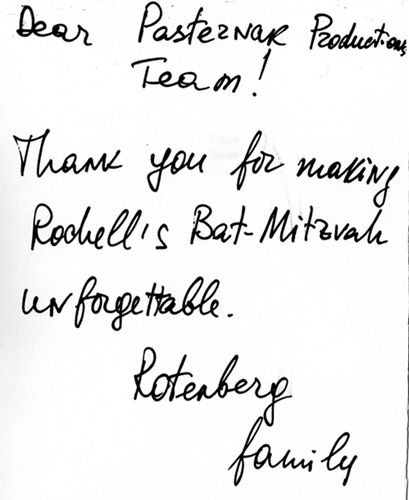 Dear Pasternak Productions
Team!
Thank you for making
Rochell's Bat-Mitzvah
unforgettable.
Rotenberg
family